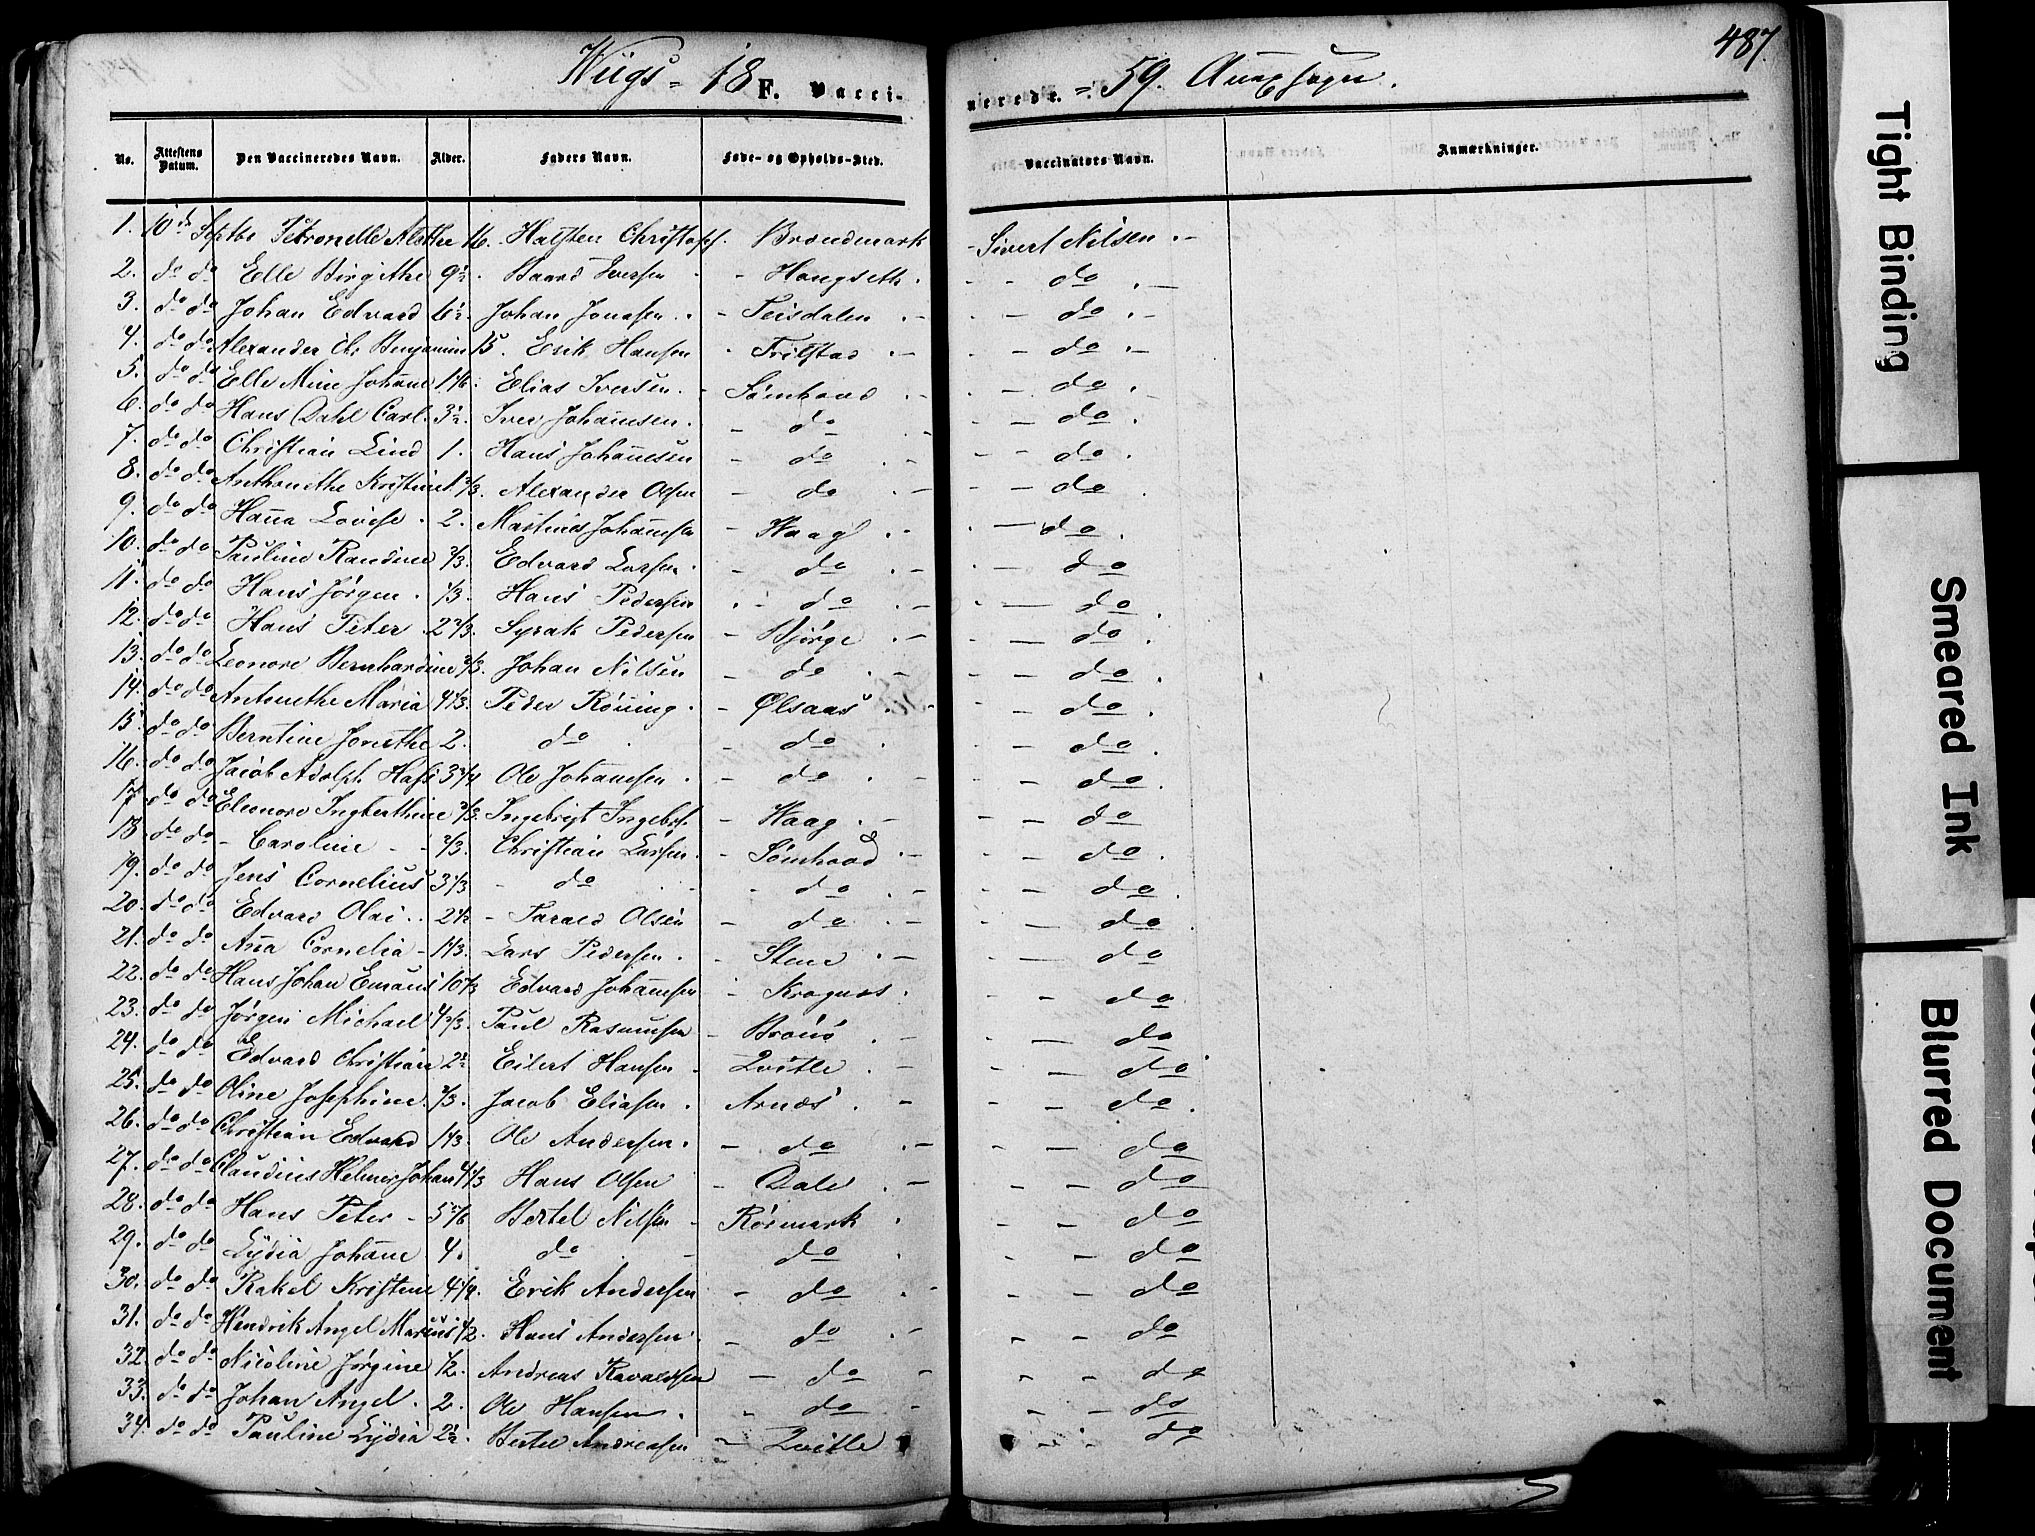 487.
Wiigs - 18 F. Vacci- nerede. - 59. Anex sogn.
No. Attestens Datum. Den Vaccineredes Navn. Alder. Faders Navn. Føde- og Opholds-Sted. Vaccinators Navn. Anmærkninger.
1. 10de Septbr Petronelle Alethe 16. Halsten Christoph. Brandmark - Sivert Nilsen. -
2. do do Elle Birgithe 9½. Baard Iversen - Hongseth. - - do . -
3. do do Johan Edvard 6½. Johan Jonasen. - Teisdalen . - - do . -
4. do do Alexander Chr. Benjamin 15. Erik Hansen - . - - do . -
5. do do Elle Mine Johanne 1 1/6. Elias Iversen. - Sømhoved . - - do .
6. do do Hans Dahl Carl. 3½. Iver Johannesen. - do . - - do .
7. do do Christian Lind 1. Hans Johannesen - do . - - do .
8. do do Anthonethe Kristine 1 2/3. Alexander Olsen - do . - - do .
9. do do Hanna Lovise . 2. Martinus Johannesen - Haag . - - do .
10. do do Pauline Randine 2/3. Edvard Larsen. - do . - - do
11. do do Hans Jørgen . 1/3. Hans Pedersen . - do . - - do .
12. do do Hans Peter . 2 2/3. Syrak Pedersen - Bjørge . - - do .
13. do do Leonore Bernhardine 2/3. Johan Nilsen - do . - - do .
14. do do Antonethe Maria 4 1/3. Peder Rønning . - Ølsaas . - - do .
15. do do Berntine Jonethe 2. do . - do . - do .
16. do do Jacob Adolph 3 3/4 Ole Johannesen . - do . - - do .
17. do do Eleonore Ingberthine 2/3. Ingebrigt Ingebrt. - Haag . - - do
18. do do - Caroline - - 2/3. Christian Larsen. - Sømhoved . - - do .
19. do do Jens Cornelius 3 1/3 - do . - - do . - - do .
20. do do Edvard Olai . . 2 1/2 - Tarald Olsen - do . - - do .
21. do do Anna Cornelia - 1 1/3. Lars Pedersen . - Stene . - - do
22. do do Hans Johan Emanuel 10 1/3 Edvard Johannesen - Kragnes . - - do
23. do do Jørgen Michael 4 2/3. Paul Rasmusen - . - - do
24. do do Edvard Christian 2½ Eilert Hansen - . - - do
25. do do Oline Josephine. 2/3. Jacob Eliasen . Arnæs . - - do .
26. do do Christian Edvard 1 1/3. Ole Andersen. - do . - - do
27. do do Claudius Helmer Johan 4 1/3 Hans Olsen - Dale . - - do
28. do do Hans Peter - 5 5/6 Bertel Nilsen - Rørmark . - - do
29. do do Lydia Johanne 4. do . - do . - - do
30. do do Rakel Kristine 4 1/4. Erik Andersen - do . - - do
31. do do Hendrik Angel Marius 1/2. Hans Andersen. - do . - - do
32. do do Nicoline Jørgine 1/2. Andreas - do - - do
33. do do Johan Angel . 2. Ole Hansen . - do - - do
34. do do Pauline Lydia 2½. Bertel Andreasen - - do
Tight Binding
Smeared Ink
Blurred Document